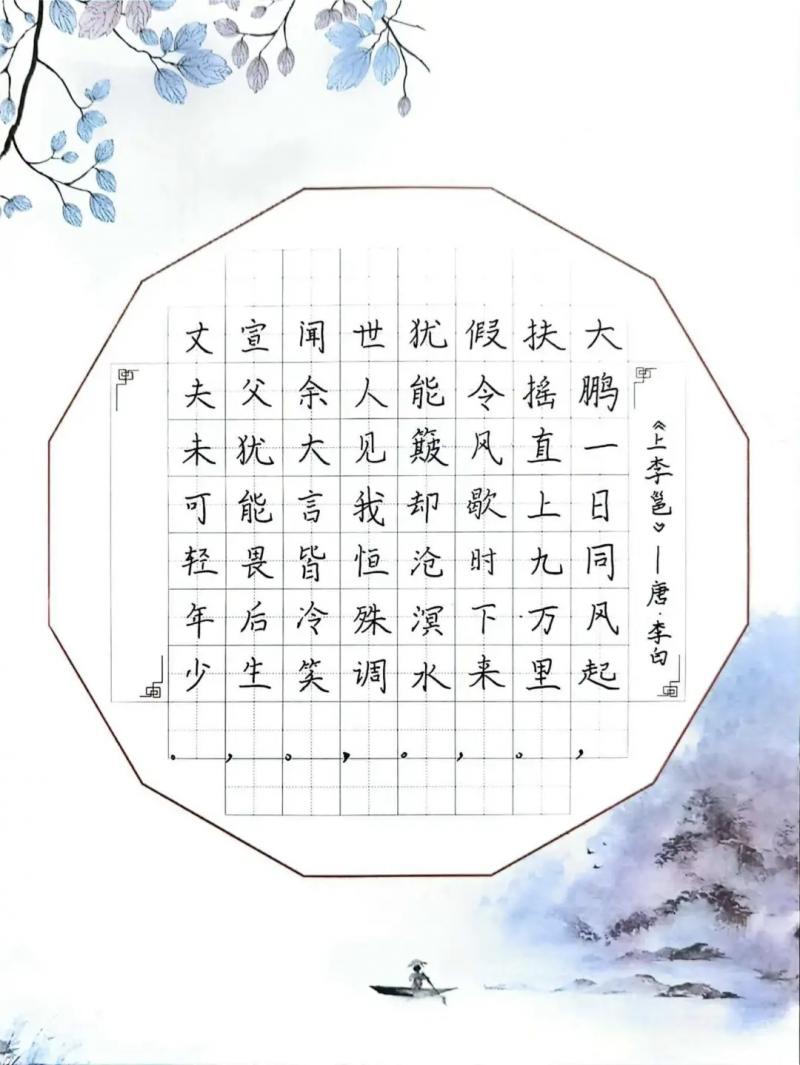 《上李邕》—唐·李白
大鹏一日同风起，
扶摇直上九万里。
假令风歇时下来，
犹能簸却沧溟水。
世人见我恒殊调，
闻余大言皆冷笑。
宣父犹能畏后生，
丈夫未可轻年少。